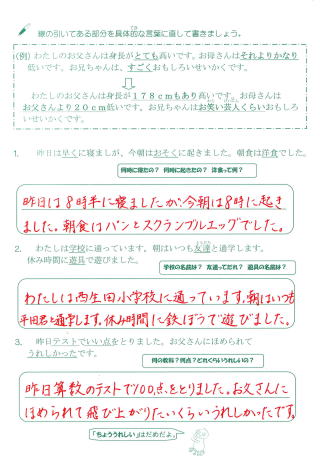 線の引いてある部分を具体的な言葉に直して書きましょう。
(例) わたしのお父さんは身長がとても高いです。お母さんはそれよりかなり
低いです。お兄ちゃんは、すごくおもしろいせいかくです。
わたしのお父さんは身長が178cmもあり高いです。お母さんは
お父さんより20cm低いです。お兄ちゃんはお笑い芸人くらいおもしろ
いせいかくです。
1. 昨日は早くに寝ましたが、今朝はおそくに起きました。朝食は洋食でした。
何時に寝たの? 何時に起きたの? 洋食って何?
昨日は8時半に寝ましたが、今朝は8時に起き
ました。朝食はパンとスクランブルエッグでした。
2. わたしは学校に通っています。朝はいつも友達と通学します。
休み時間に遊具で遊びました。
学校の名前は? 友達ってだれ? 遊具の名前は?
わたしは西生田小学校に通っています。朝はいつも
平田君と通学します。休み時間に鉄ぼうで遊びました。
3. 昨日テストでいい点をとりました。お父さんにほめられて
うれしかったです。
何の教科?何点?どれくらいうれしいの?
昨日算数のテストで100点をとりました。お父さんに
ほめられて飛び上がりたいくらいうれしかったです。
「ちょううれしい」はだめだよ。